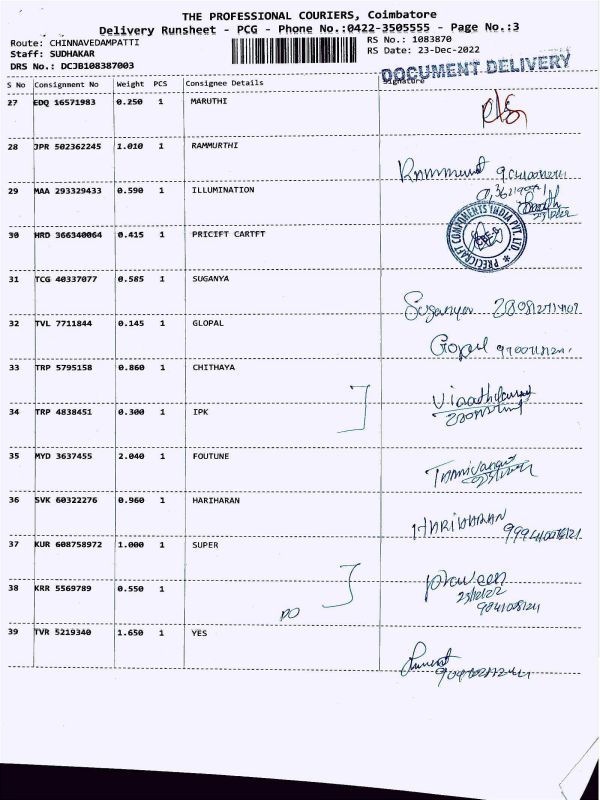 THE PROFESSIONAL COURIERS, Coimbatore
Delivery Runsheet - PCG - Phone No.:0422-3505555 - Page No.:3
Route: CHINNAVEDAMPATTI RS No.: 1083870
Staff: SUDHAKAR RS Date: 23-Dec-2022
DRS No.: DCJB108387003
DOCUMENT DELIVERY
S No Consignment No Weight PCS Consignee Details Signature
27 EDQ 16571983 0.250 1 MARUTHI
28 JPR 502362245 1.010 1 RAMMURTHI
29 MAA 293329433 0.590 1 ILLUMINATION
23/12/22
30 HRD 366340064 0.415 1 PRICIFT CARTFT
PRECICRAFT COMPONENTS INDIA PVT. LTD.
31 TCG 40337077 0.585 1 SUGANYA
Suganya
32 TVL 7711844 0.145 1 GLOPAL
Gopal
33 TRP 5795158 0.860 1 CHITHAYA
34 TRP 4838451 0.300 1 IPK
35 MYD 3637455 2.040 1 FOUTUNE
36 SVK 60322276 0.960 1 HARIHARAN
HARIHARAN
37 KUR 608758972 1.000 1 SUPER
38 KRR 5569789 0.550 1
Praveen
23/12/22
39 TVR 5219340 1.650 1 YES